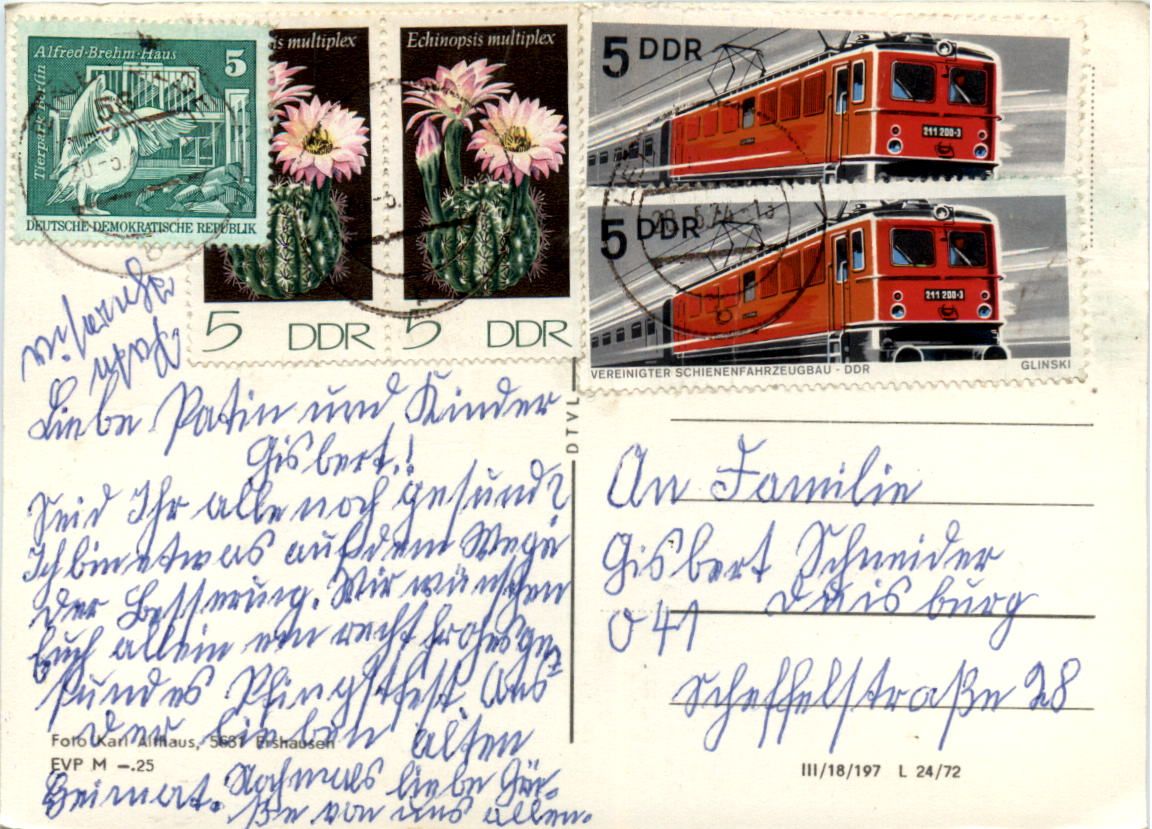 Alfred-Brehm-Haus
5
Tierpark Berlin
DEUTSCHE DEMOKRATISCHE REPUBLIK
is multiplex
5 DDR
Echinopsis multiplex
5 DDR
5 DDR
211 200-3
5 DDR
211 200-3
VEREINIGTER SCHIENENFAHRZEUGBAU - DDR
GLINSKI
Liebe Patin und Kinder
Gisbert.!
Seid Ihr alle noch gesund?
Ich bin etwas auf dem Wege
der Besserung. Wir wünschen
Euch allein ein recht frohes ge-
sundes Pfingstfest. Aus
der lieben alten
Heimat. Nochmals liebe Grü-
ße von uns allen.
Foto Karl Althaus, 5631 Ershausen
EVP M –.25
DTVL
An Familie
Gisbert Schneider
Duisburg
O 41
Scheffelstraße 28
III/18/197 L 24/72